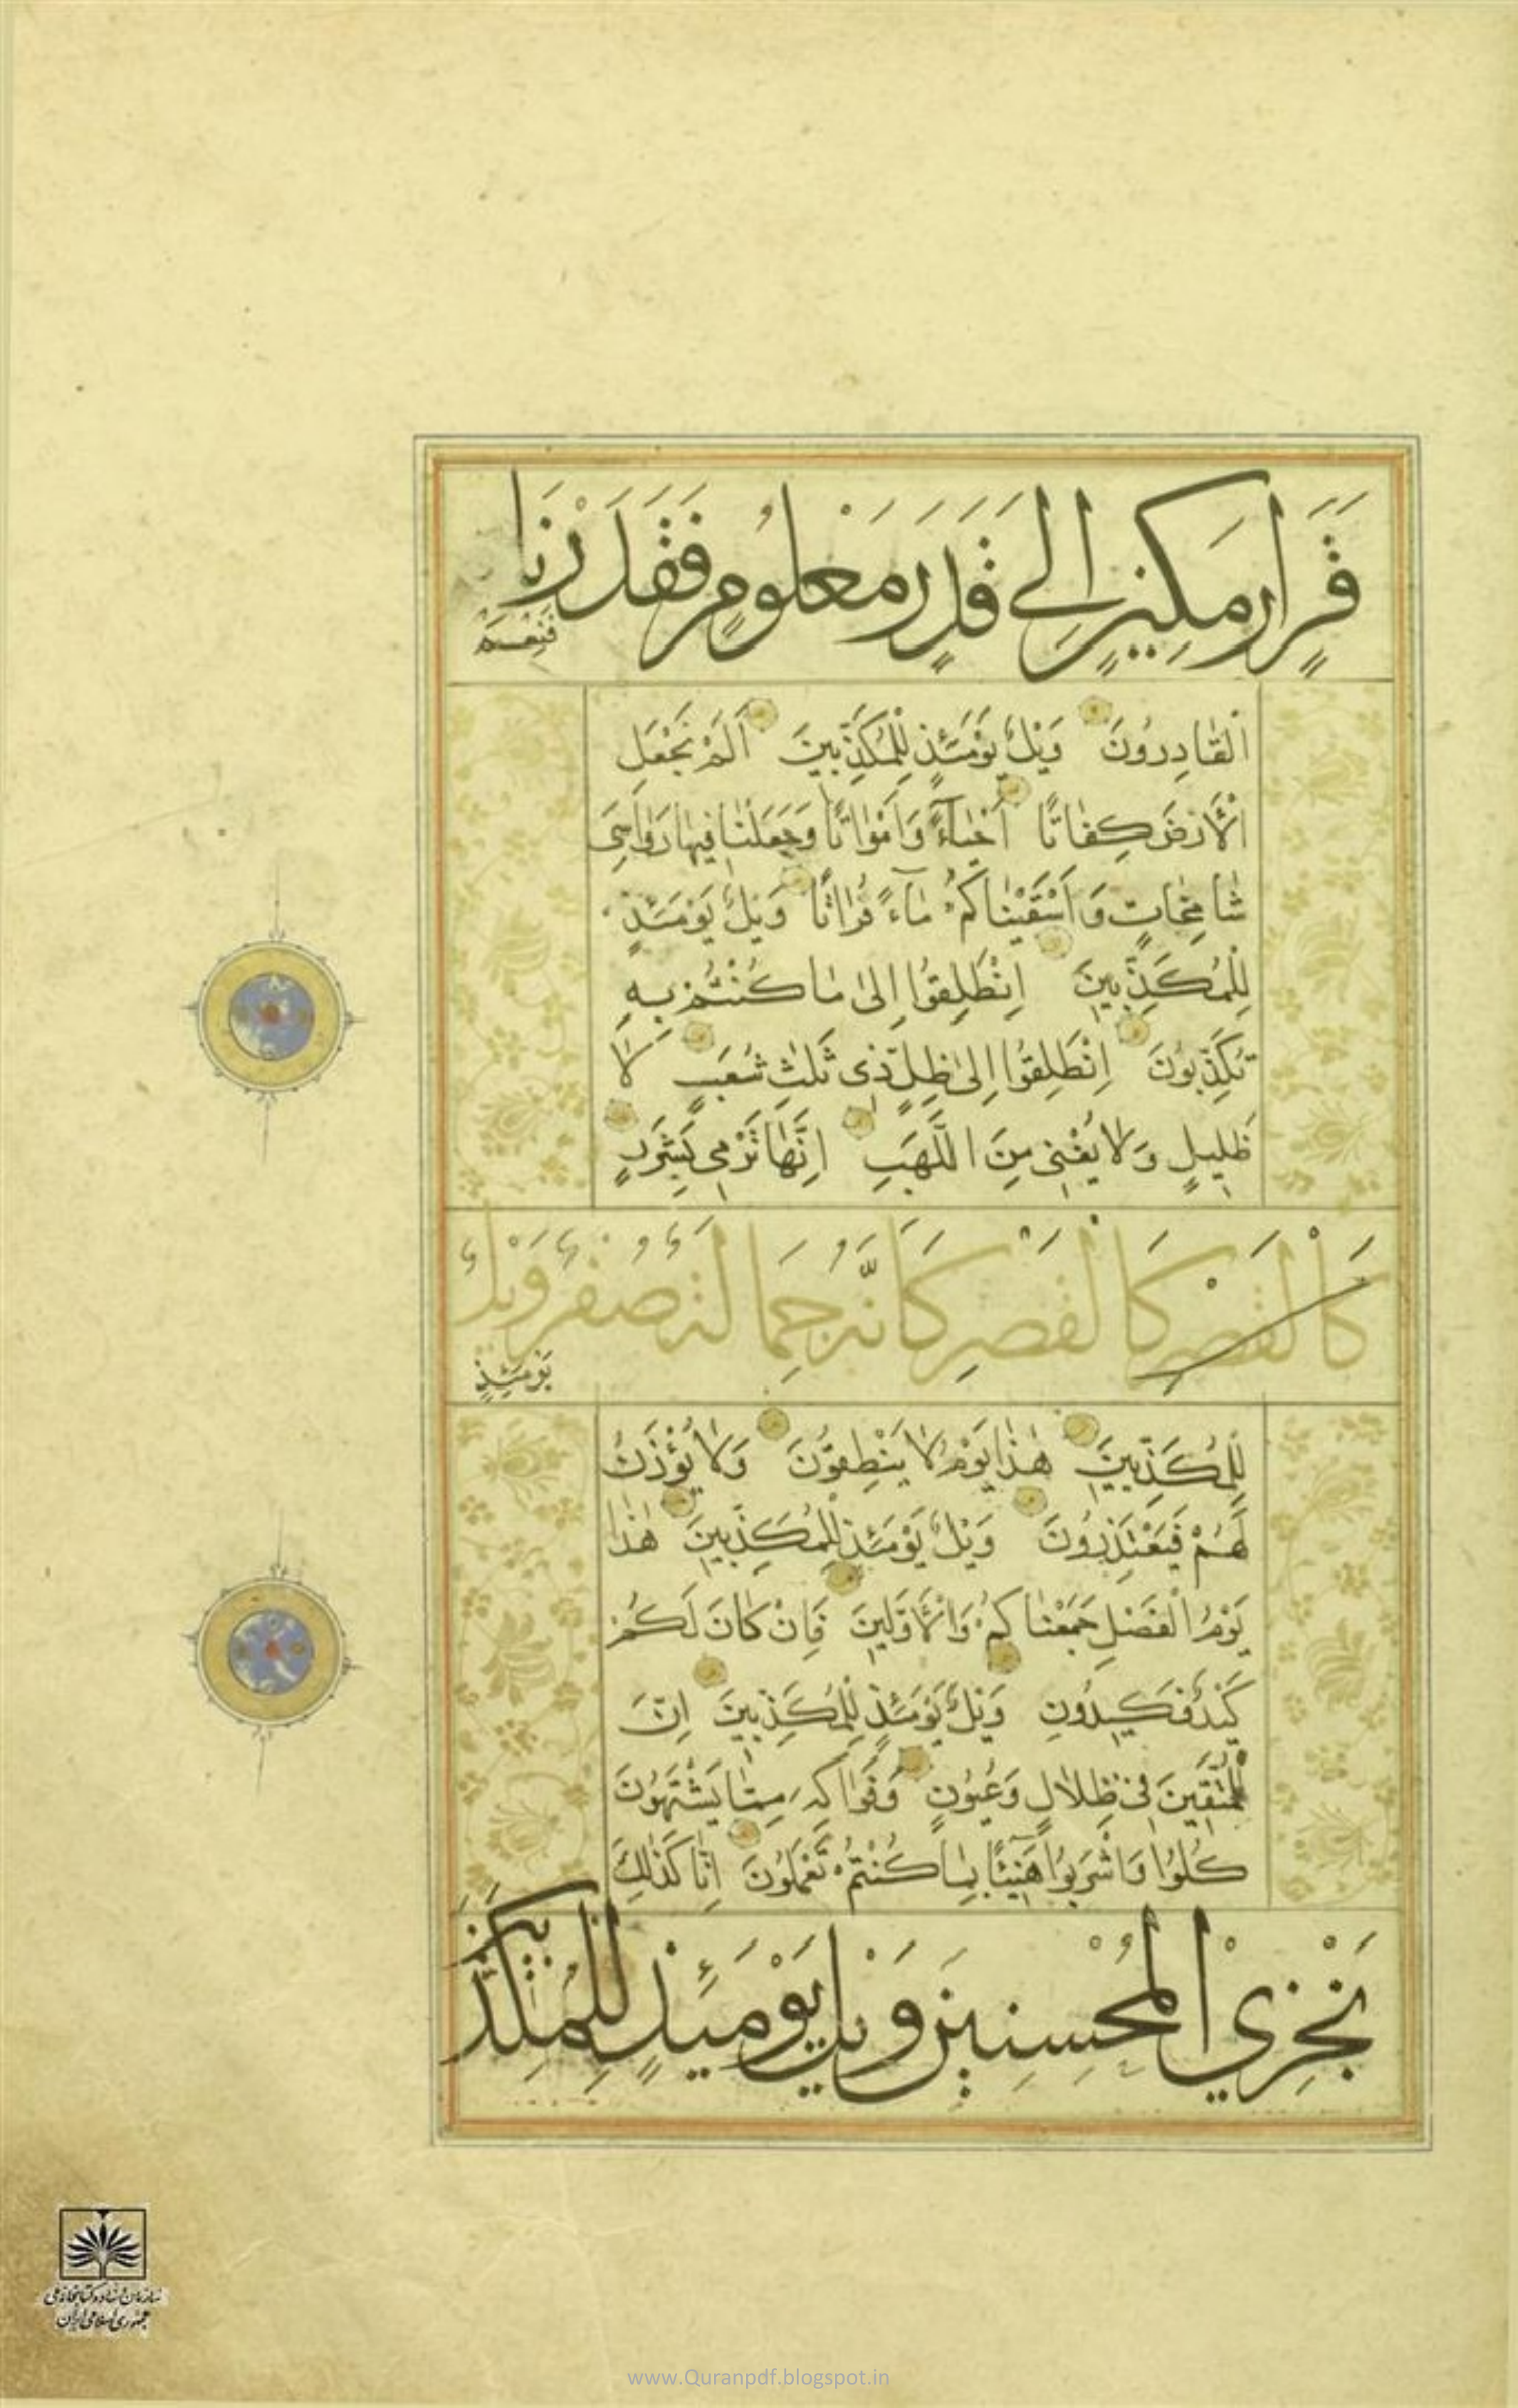 قَرَارٍ مَكِينٍ إِلَى قَدَرٍ مَعْلُومٍ فَقَدَرْنَا
فَنِعْمَ
الْقَادِرُونَ وَيْلٌ يَوْمَئِذٍ لِلْمُكَذِّبِينَ اَلَمْ نَجْعَلِ
الْأَرْضَ كِفَاتًا اَحْيَآءً وَاَمْوَاتًا وَجَعَلْنَا فِيهَا رَوَاسِيَ
شَامِخَاتٍ وَاَسْقَيْنَاكُمْ مَآءً فُرَاتًا وَيْلٌ يَوْمَئِذٍ
لِلْمُكَذِّبِينَ اِنْطَلِقُوا اِلىٰ مَا كُنْتُمْ بِهِ
تُكَذِّبُونَ اِنْطَلِقُوا اِلىٰ ظِلٍّ ذِى ثَلٰثِ شُعَبٍ لَا
ظَلِيلٍ وَلَا يُغْنِى مِنَ اللَّهَبِ اِنَّهَا تَرْمِى بِشَرَرٍ
كَالْقَصْرِ كَالْقَصْرِ كَاَنَّهُ جِمَالَتٌ صُفْرٌ وَيْلٌ
يَوْمَئِذٍ
لِلْمُكَذِّبِينَ هٰذَا يَوْمُ لَا يَنْطِقُونَ وَلَا يُؤْذَنُ
لَهُمْ فَيَعْتَذِرُونَ وَيْلٌ يَوْمَئِذٍ لِلْمُكَذِّبِينَ هٰذَا
يَوْمُ الْفَصْلِ جَمَعْنَاكُمْ وَالْأَوَّلِينَ فَاِنْ كَانَ لَكُمْ
كَيْدٌ فَكِيدُونِ وَيْلٌ يَوْمَئِذٍ لِلْمُكَذِّبِينَ اِنَّ
الْمُتَّقِينَ فِى ظِلَالٍ وَعُيُونٍ وَفَوَاكِهَ مِمَّا يَشْتَهُونَ
كُلُوا وَاشْرَبُوا هَنِيئًا بِمَا كُنْتُمْ تَعْمَلُونَ اِنَّا كَذٰلِكَ
نَجْزِي الْمُحْسِنِينَ وَيْلٌ يَوْمَئِذٍ لِلْمُكَذِّبِينَ
سازمان اسناد و کتابخانه ملی
جمهوری اسلامی ایران
www.Quranpdf.blogspot.in